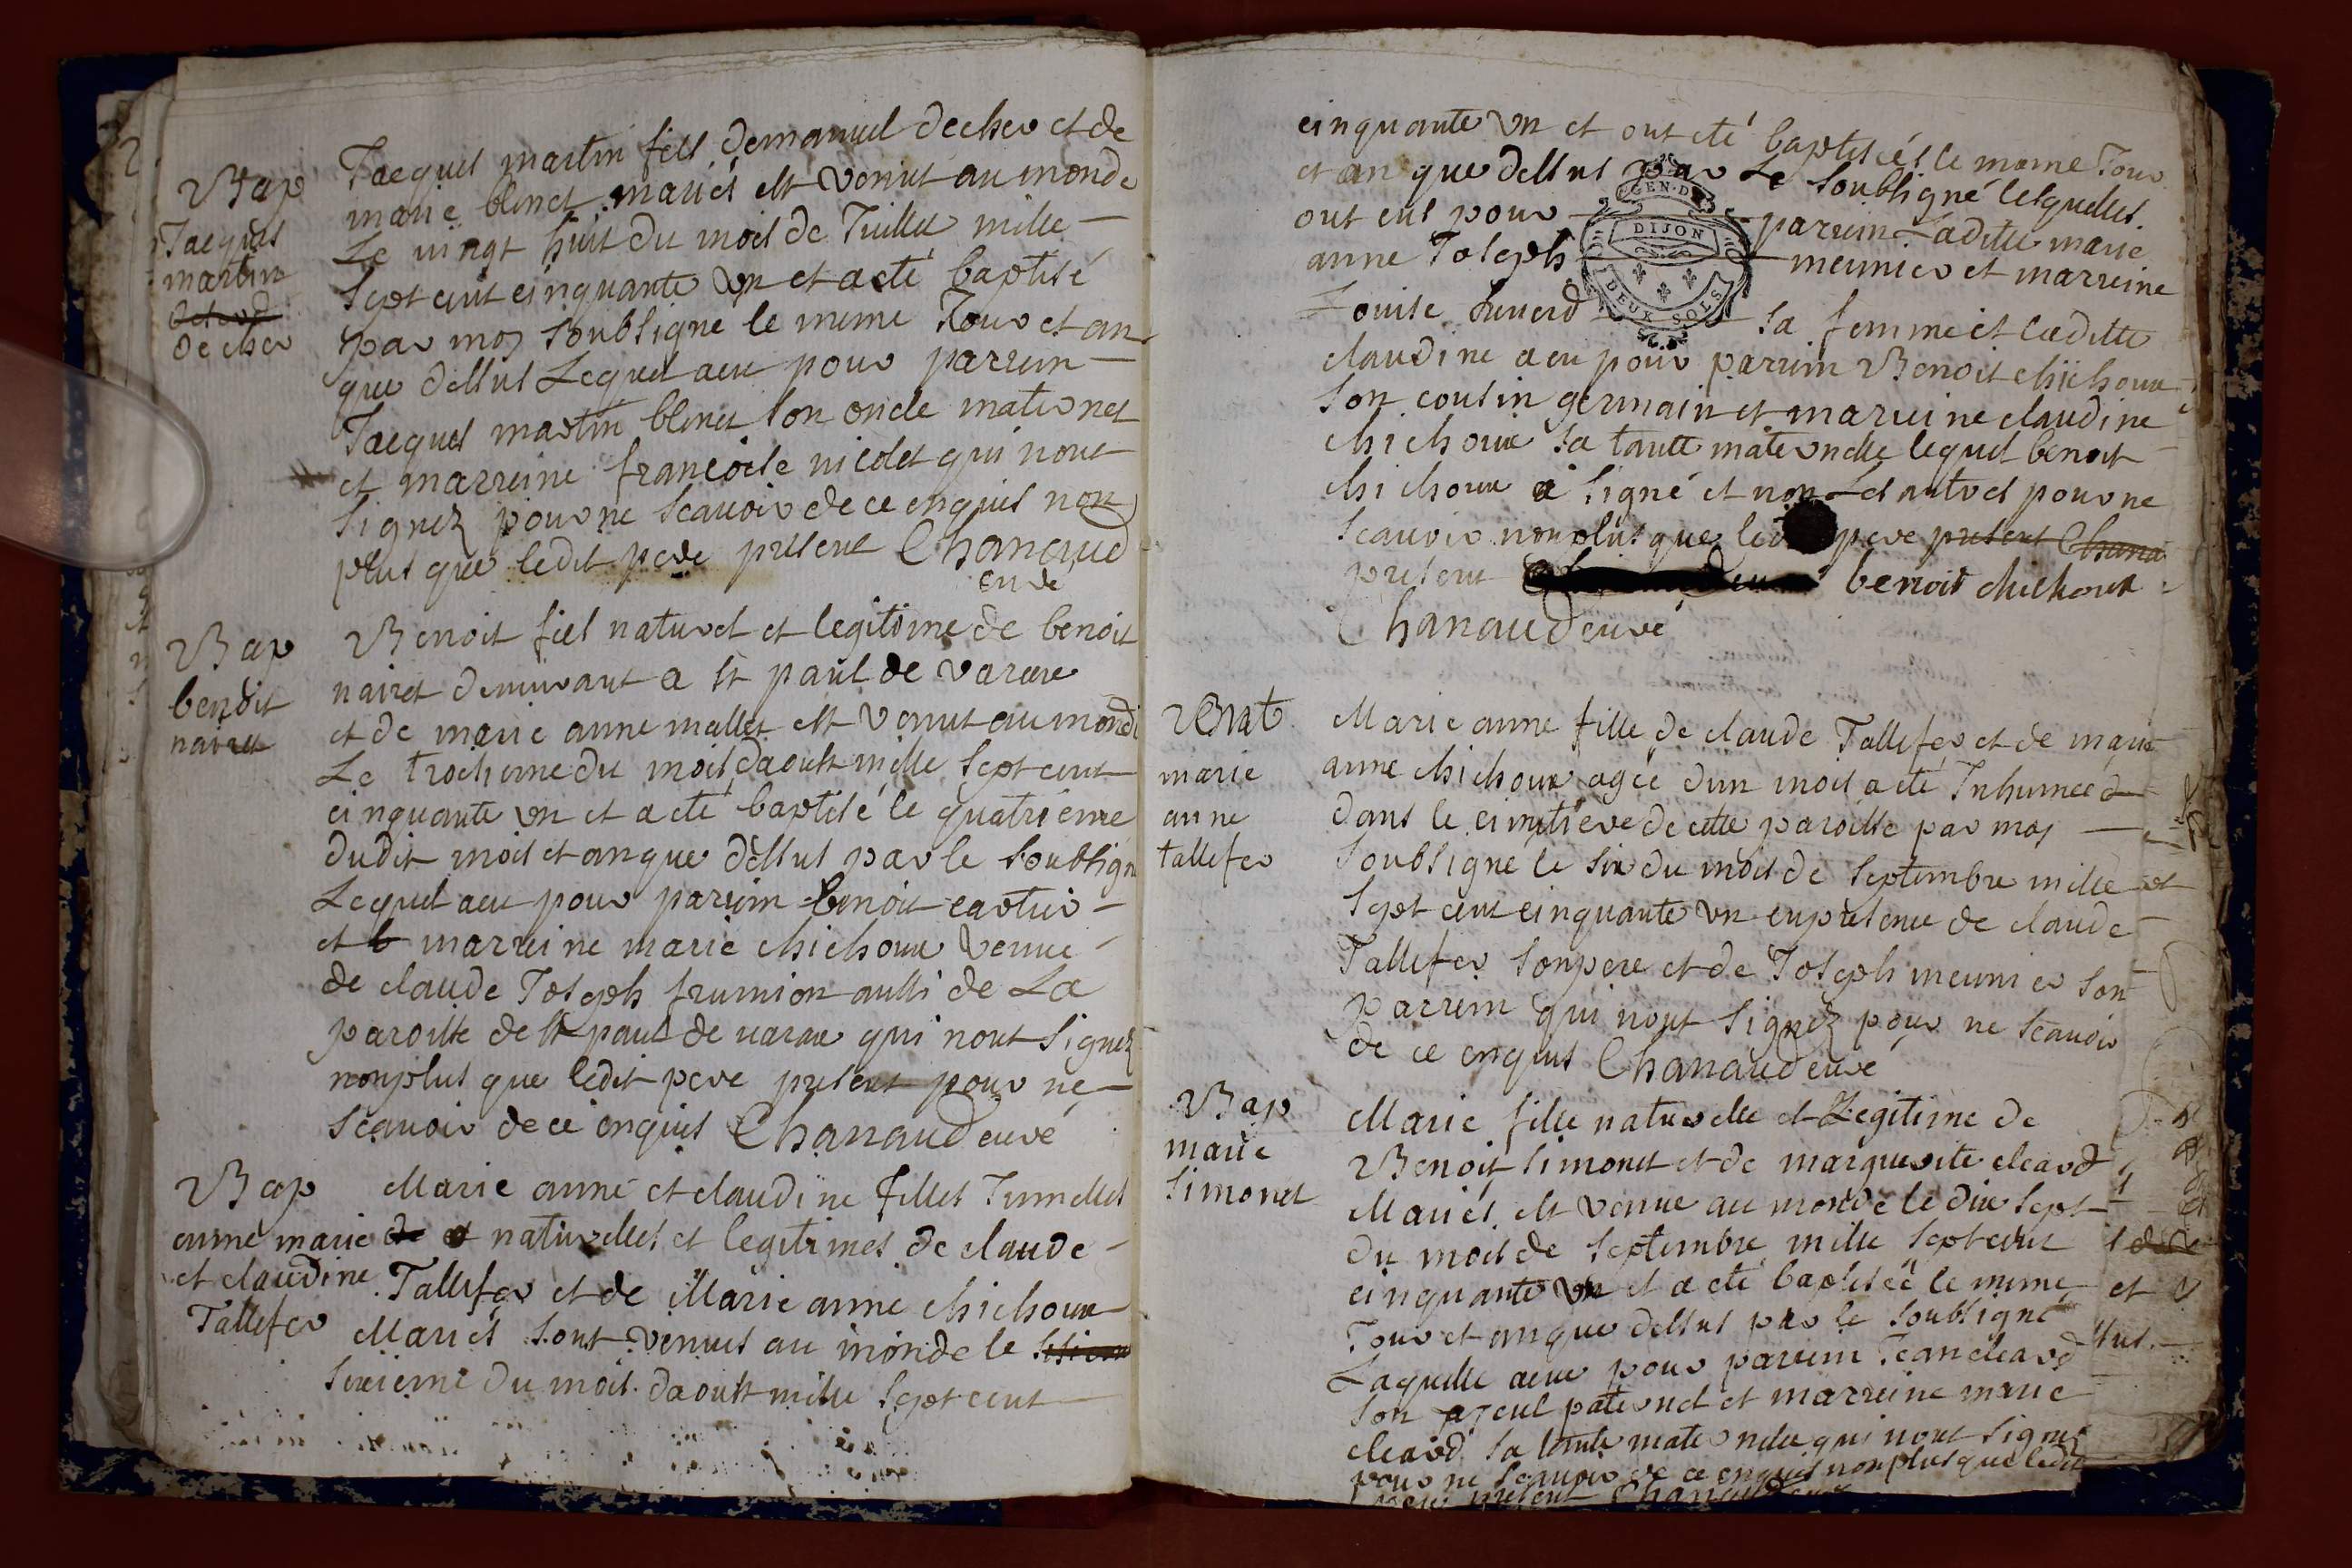 Bap
Jacques
martin
decher
Jacques martin fils demanuel decher et de
marie blenet mariés est venut au monde
Le vingt huit du mois de Juillet mille
Sept cent cinquante un et a eté baptisé
par moy soubsigné le meme Jour et an
que dessus Lequel a eu pour parrein
Jacques martin blenet son oncle maternel
et marreine francoise nicolet qui nont
signez pour ne scauoir de ce enquis non
plus que ledit pere present Chanaud
curé
Bap
benoit
nairet
Benoit fils naturel et legitime de benoit
nairet demurant a st paul de varax
et de marie anne mallet est venut au monde
Le troisieme du mois daoust mille Sept cent
cinquante un et a eté baptisé le quatriéme
dudit mois et an que dessus par le soubsigné
Lequel a eu pour parrein benoit cartier
et marreine marie chichoux veuue
de claude Joseph frumion aussi de La
paroisse de st paul de uarax qui nont signez
nonplus que ledit pere present pour ne
scauoir de ce enquis Chanaud curé
Bap
anne marie
et claudine
Tallefer
Marie anne et claudine filles Jumelles
naturelles et legitimes de claude
Tallefer et de Marie anne chichoux
Mariés sont venues au monde le
sixieme du mois daoust mille Sept cent
cinquante un et ont eté baptisées le meme Jour
et an que dessus par Le soubsigné lesquelles
ont eus pour parrein Ladite marie
anne Joseph meunier et marreine
Louise sa femme et Ladite
claudine a eu pour parrein Benoit chichoux
son cousin germain et marreine claudine
chichoux sa tante maternelle lequel benoit
chichoux a signé et non Les autres pour ne
scauoir nonplus que le pere present Chana
present benoit chichoux
Chanaud curé
GEN. D.
DIJON
DEUX SOLS
Ent
marie
anne
tallefer
Marie anne fille de claude Tallefer et de marie
anne chichoux agée dun mois a eté Inhumée
dans le cimetiere de cette paroisse par moy
soubsigné le six du mois de septembre mille
Sept cent cinquante un enpresence de claude
Tallefer sonpere et de Joseph meunier son
parrein qui nont signez pour ne scauoir
de ce enquis Chanaud curé
Bap
marie
simonet
Marie fille naturelle et Legitime de
Benoit simonet et de marguerite cleard
Mariés est venue au monde le dix sept
du mois de septembre mille sept cent
cinquante un et a eté baptisée le meme
Jour et an que dessus par le soubsigné
Laquelle a eue pour parrein Jean cleard
son ayeul paternel et marreine marie
cleard sa tante maternelle qui nont signez
pour ne scauoir de ce enquis nonplus que ledit
pere present Chanaud curé